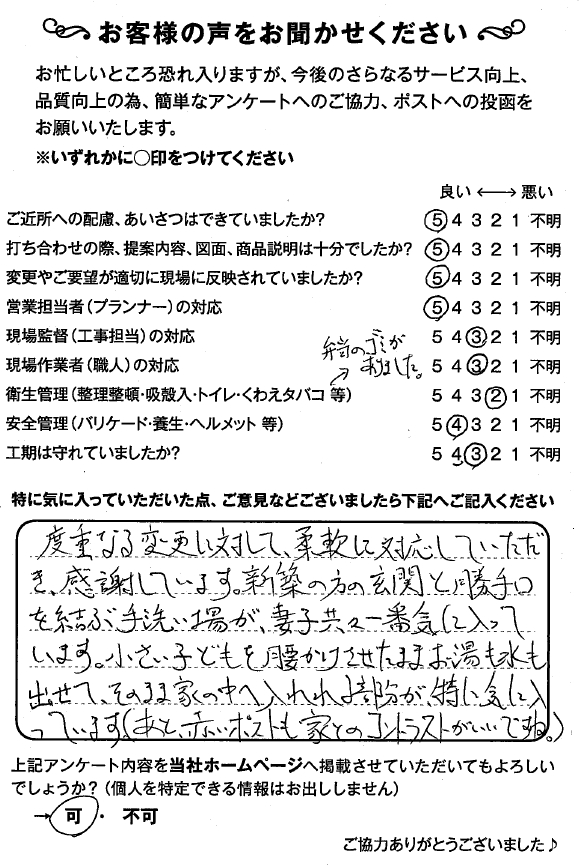 お客様の声をお聞かせください
お忙しいところ恐れ入りますが、今後のさらなるサービス向上、
品質向上の為、簡単なアンケートへのご協力、ポストへの投函を
お願いいたします。
※いずれかに○印をつけてください
良い ←→ 悪い
ご近所への配慮、あいさつはできていましたか? ⑤ 4 3 2 1 不明
打ち合わせの際、提案内容、図面、商品説明は十分でしたか? ⑤ 4 3 2 1 不明
変更やご要望が適切に現場に反映されていましたか? ⑤ 4 3 2 1 不明
営業担当者(プランナー)の対応 ⑤ 4 3 2 1 不明
現場監督(工事担当)の対応 5 4 ③ 2 1 不明
現場作業者(職人)の対応 5 4 ③ 2 1 不明
弁当のゴミが
ありました。
衛生管理(整理整頓・吸殻入・トイレ・くわえタバコ 等) 5 4 3 ② 1 不明
安全管理(バリケード・養生・ヘルメット 等) 5 ④ 3 2 1 不明
工期は守れていましたか? 5 4 ③ 2 1 不明
特に気に入っていただいた点、ご意見などございましたら下記へご記入ください
度重なる変更に対して、柔軟に対応していただ
き、感謝しています。新築の方の玄関と勝手口
を結ぶ手洗い場が、妻子共々一番気に入って
います。小さい子どもを腰かけさせたままお湯も水も
出せて、そのまま家の中へ入れれる部分が、特に気に入
っています(あと、赤いポストも家とのコントラストがいいですね。)
上記アンケート内容を当社ホームページへ掲載させていただいてもよろしい
でしょうか?(個人を特定できる情報はお出ししません)
→ 可 ・ 不可
ご協力ありがとうございました♪